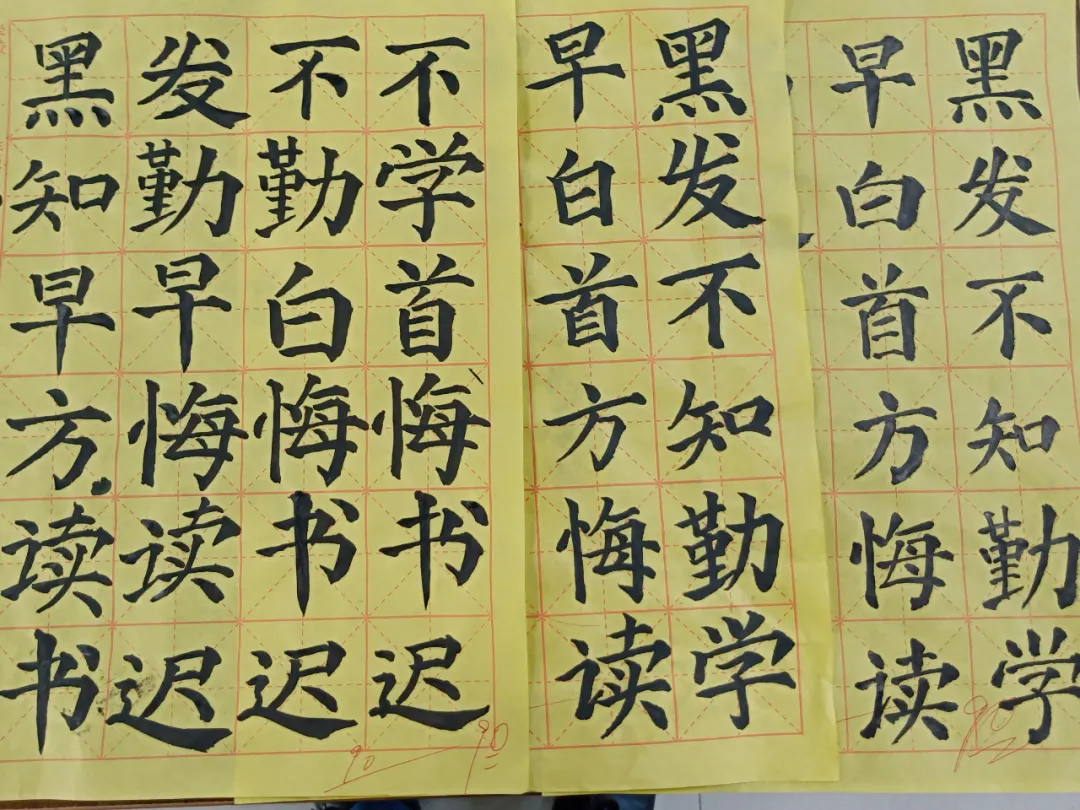 黑发不不
知勤勤学
早早白首
方悔悔悔
读读书书
书迟迟迟
90
90
黑发不知勤学
早白首方悔读
黑发不知勤学
早白首方悔读
90